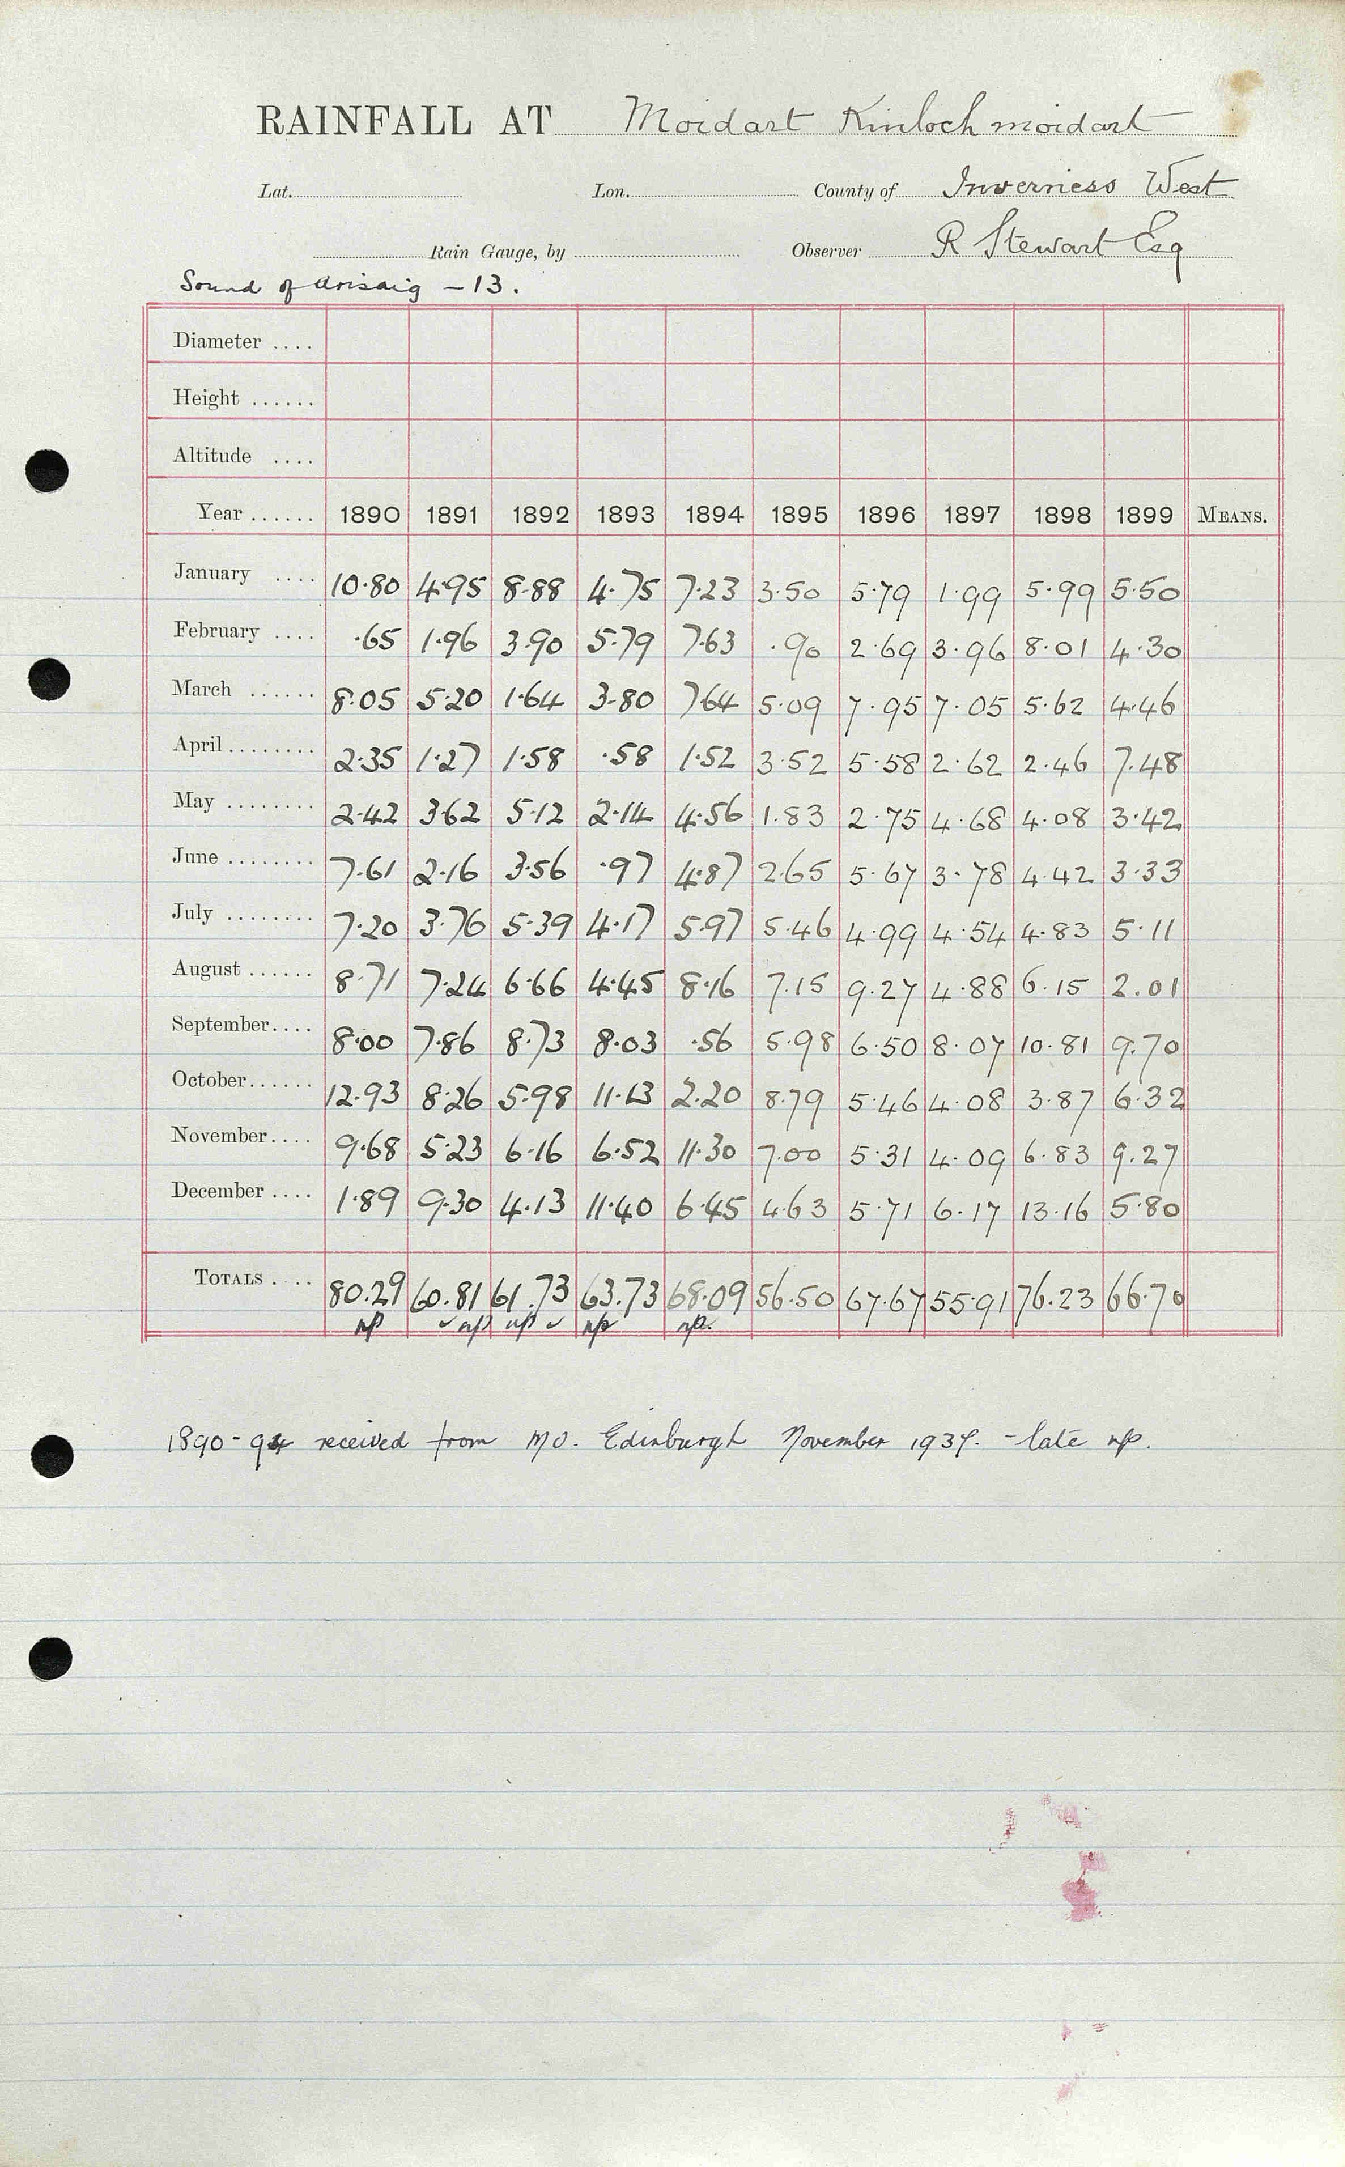 RAINFALL AT Moidart Kinlochmoidart
Lat. Lon. County of Inverness West
Rain Gauge, by Observer R Stewart Esq
Sound of Arisaig - 13.
Diameter ....
Height ......
Altitude ....
Year ...... 1890 1891 1892 1893 1894 1895 1896 1897 1898 1899 MEANS.
January .... 10.80 4.95 8.88 4.75 7.23 3.50 5.79 1.99 5.99 5.50
February .... .65 1.96 3.90 5.79 7.63 .90 2.69 3.96 8.01 4.30
March ...... 8.05 5.20 1.64 3.80 7.64 5.09 7.95 7.05 5.62 4.46
April ........ 2.35 1.27 1.58 .58 1.52 3.52 5.58 2.62 2.46 7.48
May ........ 2.42 3.62 5.12 2.14 4.56 1.83 2.75 4.68 4.08 3.42
June ........ 7.61 2.16 3.56 .97 4.87 2.65 5.67 3.78 4.42 3.33
July ........ 7.20 3.76 5.39 4.17 5.97 5.46 4.99 4.54 4.83 5.11
August ...... 8.71 7.24 6.66 4.45 8.16 7.15 9.27 4.88 6.15 2.01
September .... 8.00 7.86 8.73 8.03 .56 5.98 6.50 8.07 10.81 9.70
October ...... 12.93 8.26 5.98 11.13 2.20 8.79 5.46 4.08 3.87 6.32
November .... 9.68 5.23 6.16 6.52 11.30 7.00 5.31 4.09 6.83 9.27
December .... 1.89 9.30 4.13 11.40 6.45 4.63 5.71 6.17 13.16 5.80
TOTALS .... 80.29 60.81 61.73 63.73 68.09 56.50 67.67 55.91 76.23 66.70
np ✓ np np ✓ np np.
1890-94 received from MO. Edinburgh November 1937. - late np.